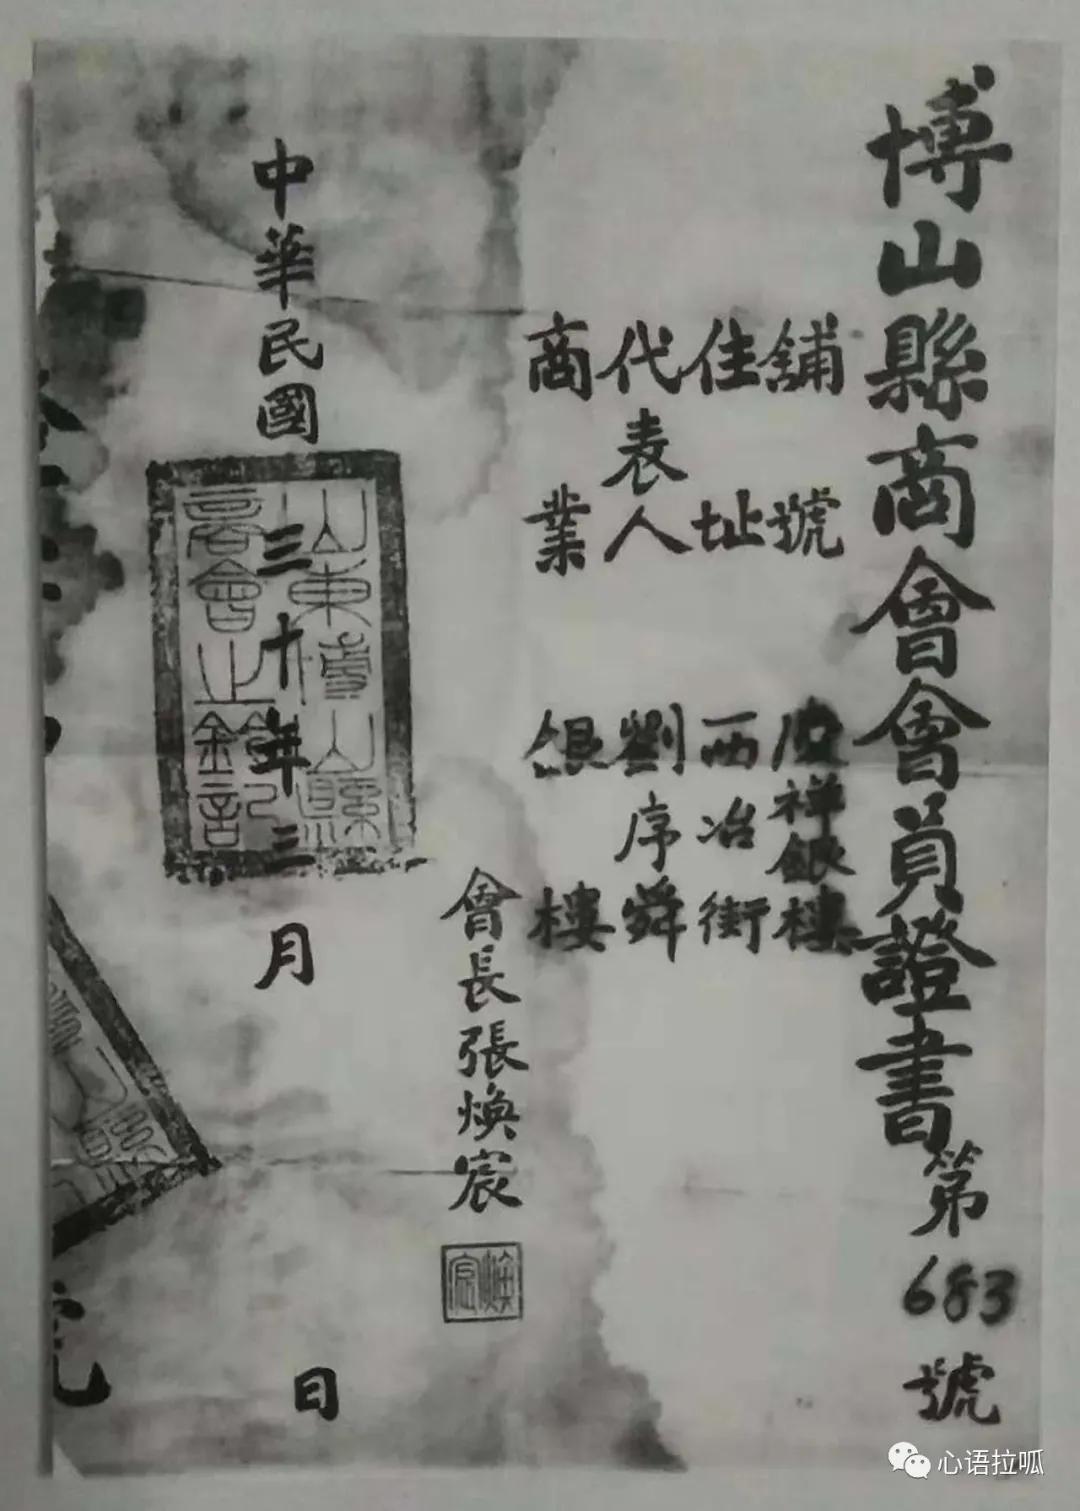 博山縣商會會員證書第683號
舖號 祥銀樓
住址 西冶街
代表人 劉序舜
商業 銀樓
會長張煥宸
煥宸
中華民國三十年三月 日
山東博山縣
商會之鈐記
心语拉呱